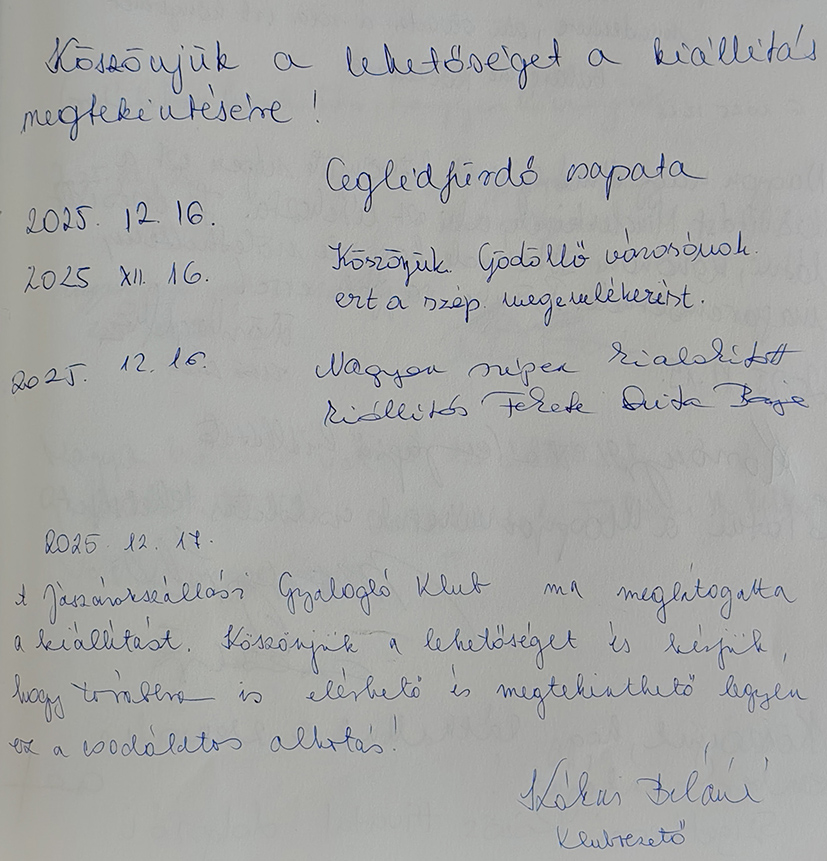 Köszönjük a lehetőséget a kiállítás
megtekintésére!
Ceglédfürdő csapata
2025. 12. 16.
2025 XII. 16.
Köszönjük Gödöllő városának
ezt a szép megemlékezést.
2025. 12. 16.
Nagyon szépen kialakított
kiállítás Fekete
2025. 12. 17.
A Jászárokszállási Gyalogló Klub ma meglátogatta
a kiállítást. Köszönjük a lehetőséget és kérjük,
hogy továbbra is elérhető és megtekinthető legyen
ez a csodálatos alkotás!
Kókai Béláné
Klubvezető